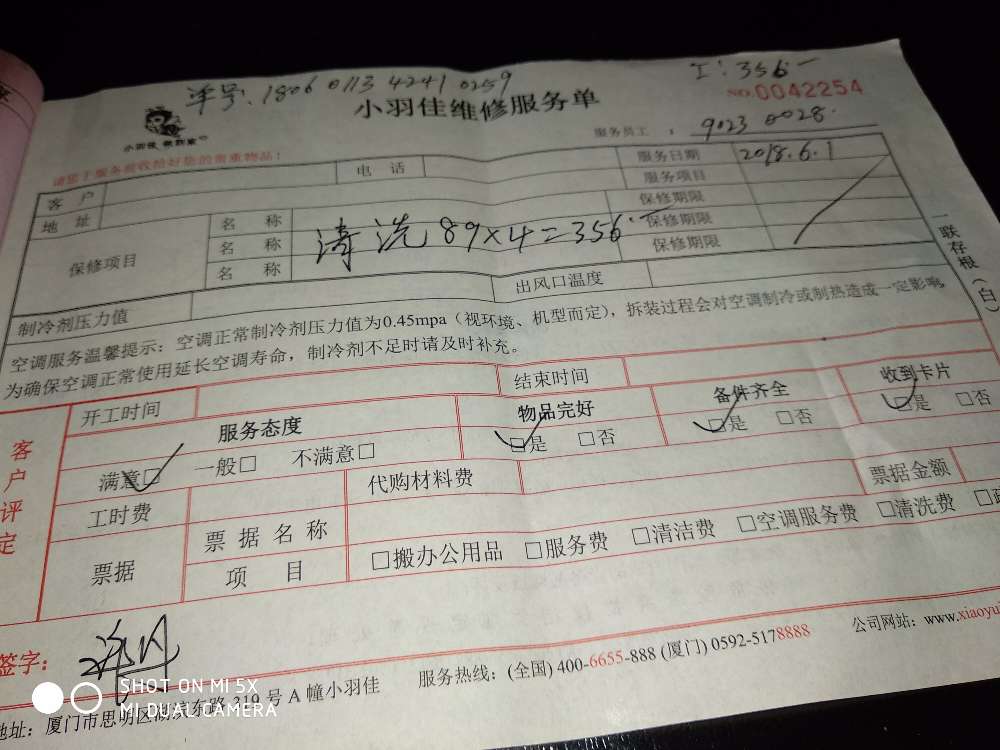 单号:1806 0113 4241 0259
工:356
NO.0042254
小羽佳维修服务单
小羽佳 做到家
服务员工 : 9023 0028
请您于服务前收拾好您的贵重物品!
客 户 电 话 服务日期 2018.6.1
地 址 服务项目
保修项目 名 称 清洗 89×4=356 保修期限
名 称 保修期限
名 称 保修期限
一联存根(白)
制冷剂压力值 出风口温度
空调服务温馨提示:空调正常制冷剂压力值为0.45mpa(视环境、机型而定),拆装过程会对空调制冷或制热造成一定影响,
为确保空调正常使用延长空调寿命,制冷剂不足时请及时补充。
客户评定
开工时间 结束时间
服务态度 物品完好 备件齐全 收到卡片
满意□ 一般□ 不满意□ □是 □否 □是 □否 □是 □否
工时费 代购材料费
票据 票据名称 票据金额
项 目 □搬办公用品 □服务费 □清洁费 □空调服务费 □清洗费
签字:
服务热线:(全国) 400-6655-888 (厦门) 0592-5178888 公司网站:www.xiaoyu
地址:厦门市思明区 东路 319 号 A 幢小羽佳
SHOT ON MI 5X
MI DUAL CAMERA